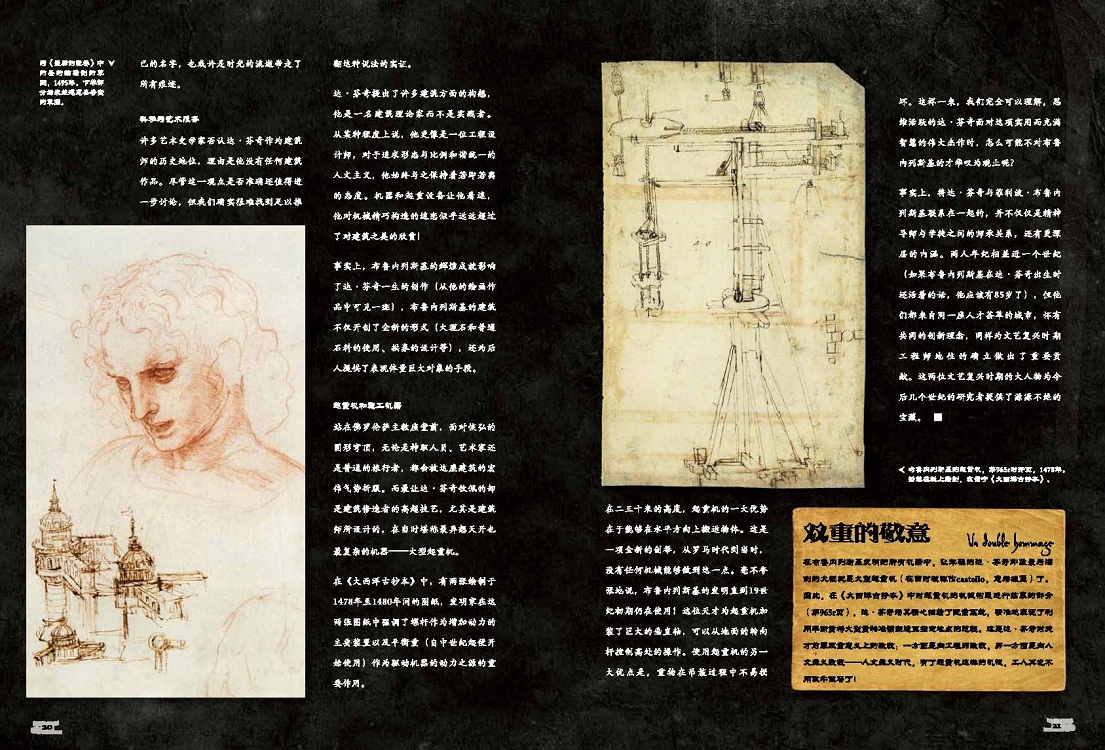 为《最后的晚餐》中
的圣约翰绘制的草
图，1495年。下半部
的草图。
己的名字，也或许是时光的流逝带走了
所有痕迹。
科学与艺术混合
许多艺术史学家否认达·芬奇作为建筑
师的历史地位，理由是他没有任何建筑
作品。尽管这一观点是否准确还值得进
一步讨论，但我们确实很难找到足以推
翻这种说法的实证。
达·芬奇提出了许多建筑方面的构想，
他是一名建筑理论家而不是实践者。
从某种程度上说，他更像是一位工程设
计师，对于追求形态与比例和谐统一的
人文主义，他始终与之保持着若即若离
的态度。机器和起重设备让他着迷，
他对机械精巧构造的迷恋似乎远远超过
了对建筑之美的欣赏！
事实上，布鲁内列斯基的辉煌成就影响
了达·芬奇一生的创作（从他的绘画作
品中可见一斑），布鲁内列斯基的建筑
不仅开创了全新的形式（大理石和普通
石料的使用、拱券的设计等），还为后
人提供了表现体量巨大对象的手段。
起重机和施工机器
站在佛罗伦萨主教座堂前，面对恢弘的
圆形穹顶，无论是神职人员、艺术家还
是普通的旅行者，都会被这座建筑的宏
伟气势折服。而最让达·芬奇钦佩的却
是建筑修造者的高超技艺，尤其是建筑
师所设计的，在当时堪称最异想天开也
最复杂的机器——大型起重机。
在《大西洋古抄本》中，有两张绘制于
1478年至1480年间的图纸，发明家在这
两张图纸中强调了螺杆作为增加动力的
主要装置以及平衡重（自中世纪起便开
始使用）作为驱动机器的动力之源的重
要作用。
在二三十米的高度，起重机的一大优势
在于能够在水平方向上搬运物体。这是
一项全新的创举，从罗马时代到当时，
没有任何机械能够做到这一点。毫不夸
张地说，布鲁内列斯基的发明直到19世
纪初期仍在使用！这位天才为起重机加
装了巨大的垂直轴，可以从地面的转向
杆控制高处的操作。使用起重机的另一
大优点是，重物在吊装过程中不易损
坏。这样一来，我们完全可以理解，思
维活跃的达·芬奇面对这项实用而充满
智慧的伟大杰作时，怎么可能不对布鲁
内列斯基的才华叹为观止呢？
事实上，将达·芬奇与菲利波·布鲁内
列斯基联系在一起的，并不仅仅是精神
导师与学徒之间的师承关系，还有更深
层的内涵。两人年纪相差近一个世纪
（如果布鲁内列斯基在达·芬奇出生时
还活着的话，他应该有85岁了），但他
们都来自同一座人才荟萃的城市，怀有
共同的创新理念，同样为文艺复兴时期
工程师地位的确立做出了重要贡
献。这两位文艺复兴时期的大人物为今
后几个世纪的研究者提供了源源不绝的
宝藏。
布鲁内列斯基的起重机，第965r对开页，1478年，
双重的敬意
Un double hommage
在布鲁内列斯基发明的所有机器中，让年轻的达·芬奇印象最为深
刻的大概就是大型起重机（在当时被称作castello，意为城堡）了。
因此，在《大西洋古抄本》中对起重机的机械构造进行临摹的部分
（第965r页），达·芬奇
20
21